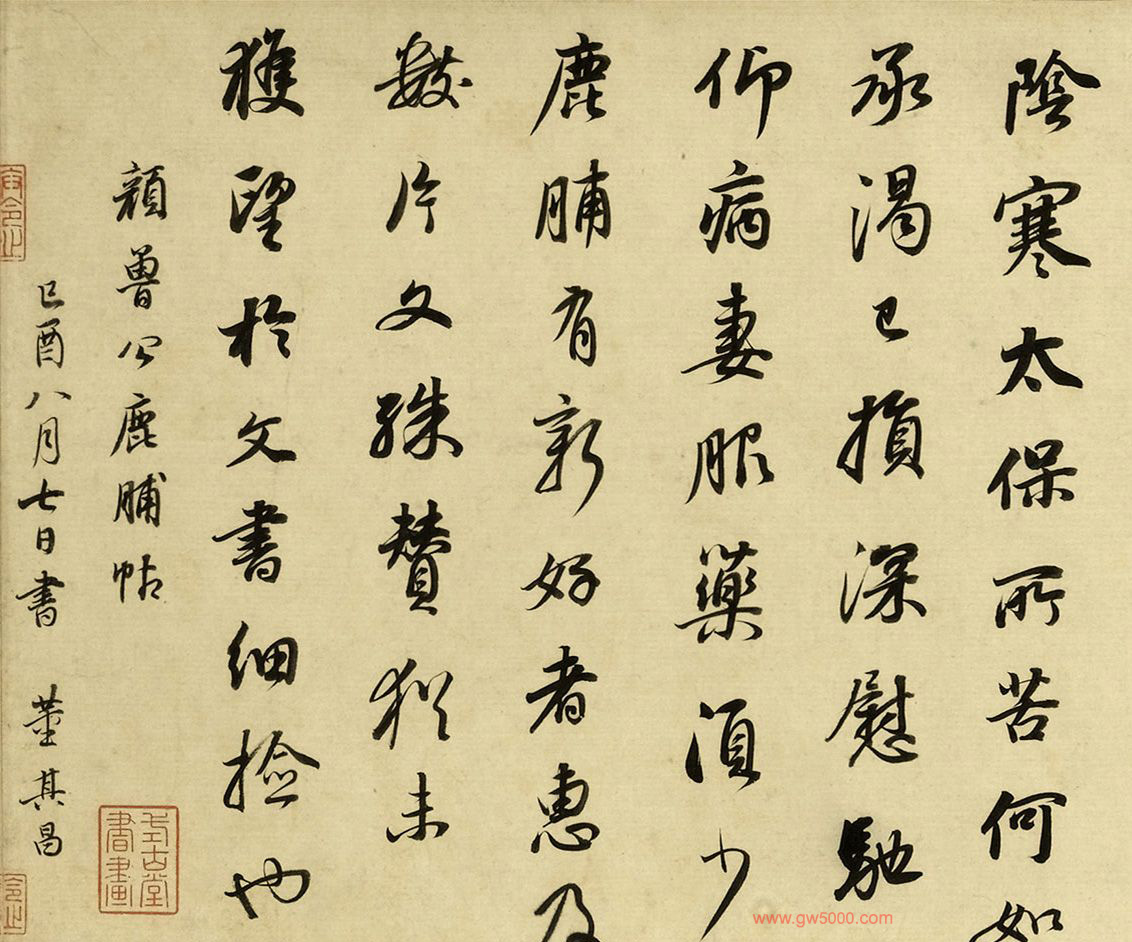 陰寒太保所苦何如
承渴已損深慰馳
仰病妻服藥須少
鹿脯有新好者惠及
數片文殊贊猶未
獲望於文書細撿也
顏魯公鹿脯帖
己酉八月七日書 董其昌
www.gw5000.com